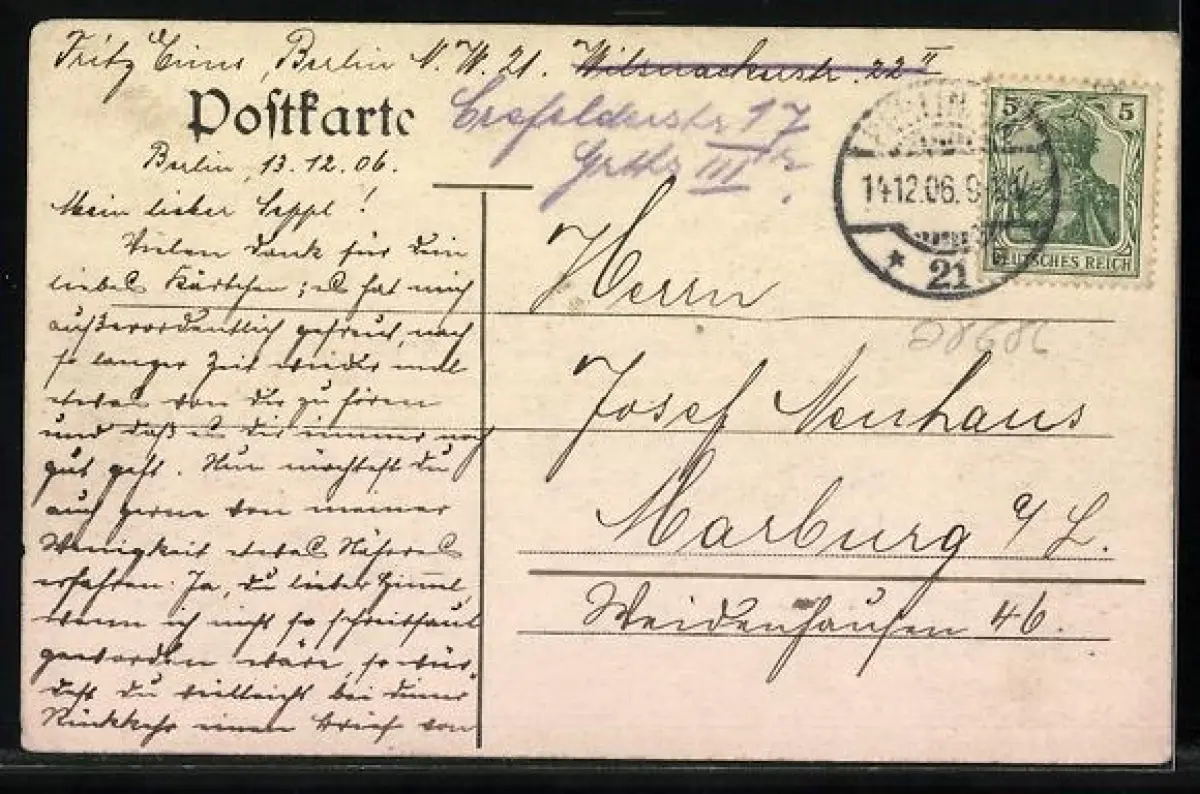 Fritz Berlin N.W. 21. Wilsnackerstr. 22 II
Postkarte
Crefelderstr. 17
Gths III
Berlin, 13.12.06.
Mein lieber Seppl!
Vielen Dank für Dein
liebes Kärtchen; es hat mich
außerordentlich gefreut, nach
so langer Zeit wieder mal
etwas von Dir zu hören
und daß es Dir immer noch
gut geht. Nun möchtest Du
auch gerne von meiner
Wenigkeit etwas Näheres
erfahren. Ja, du lieber Himmel,
wenn ich nicht so schreibfaul
geworden wäre, so wür-
dest Du vielleicht bei Deiner
Rückkehr einen Brief von
Herrn
Josef Neuhaus
Marburg a/L.
Weidenhausen 46.
5 5
DEUTSCHES REICH
14.12.06. 9
* 21